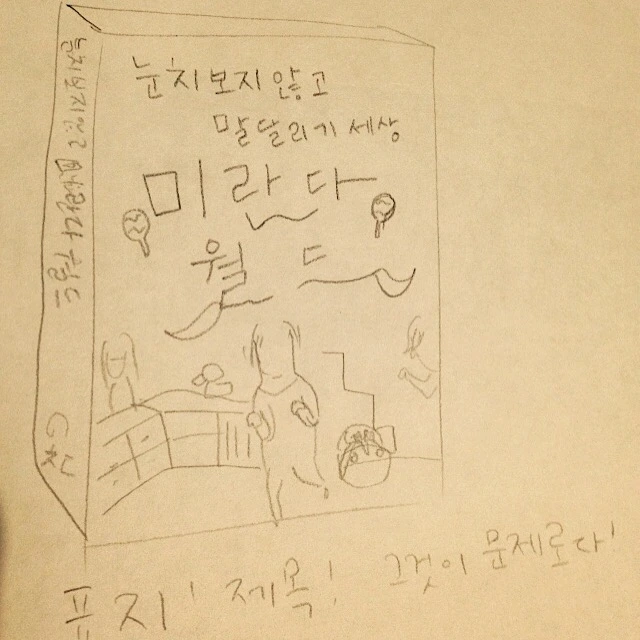 눈치보지않고
말달리기 세상
미란다
월드
눈치보지않고 미란다 월드
표지! 제목! 그것이 문제로다!